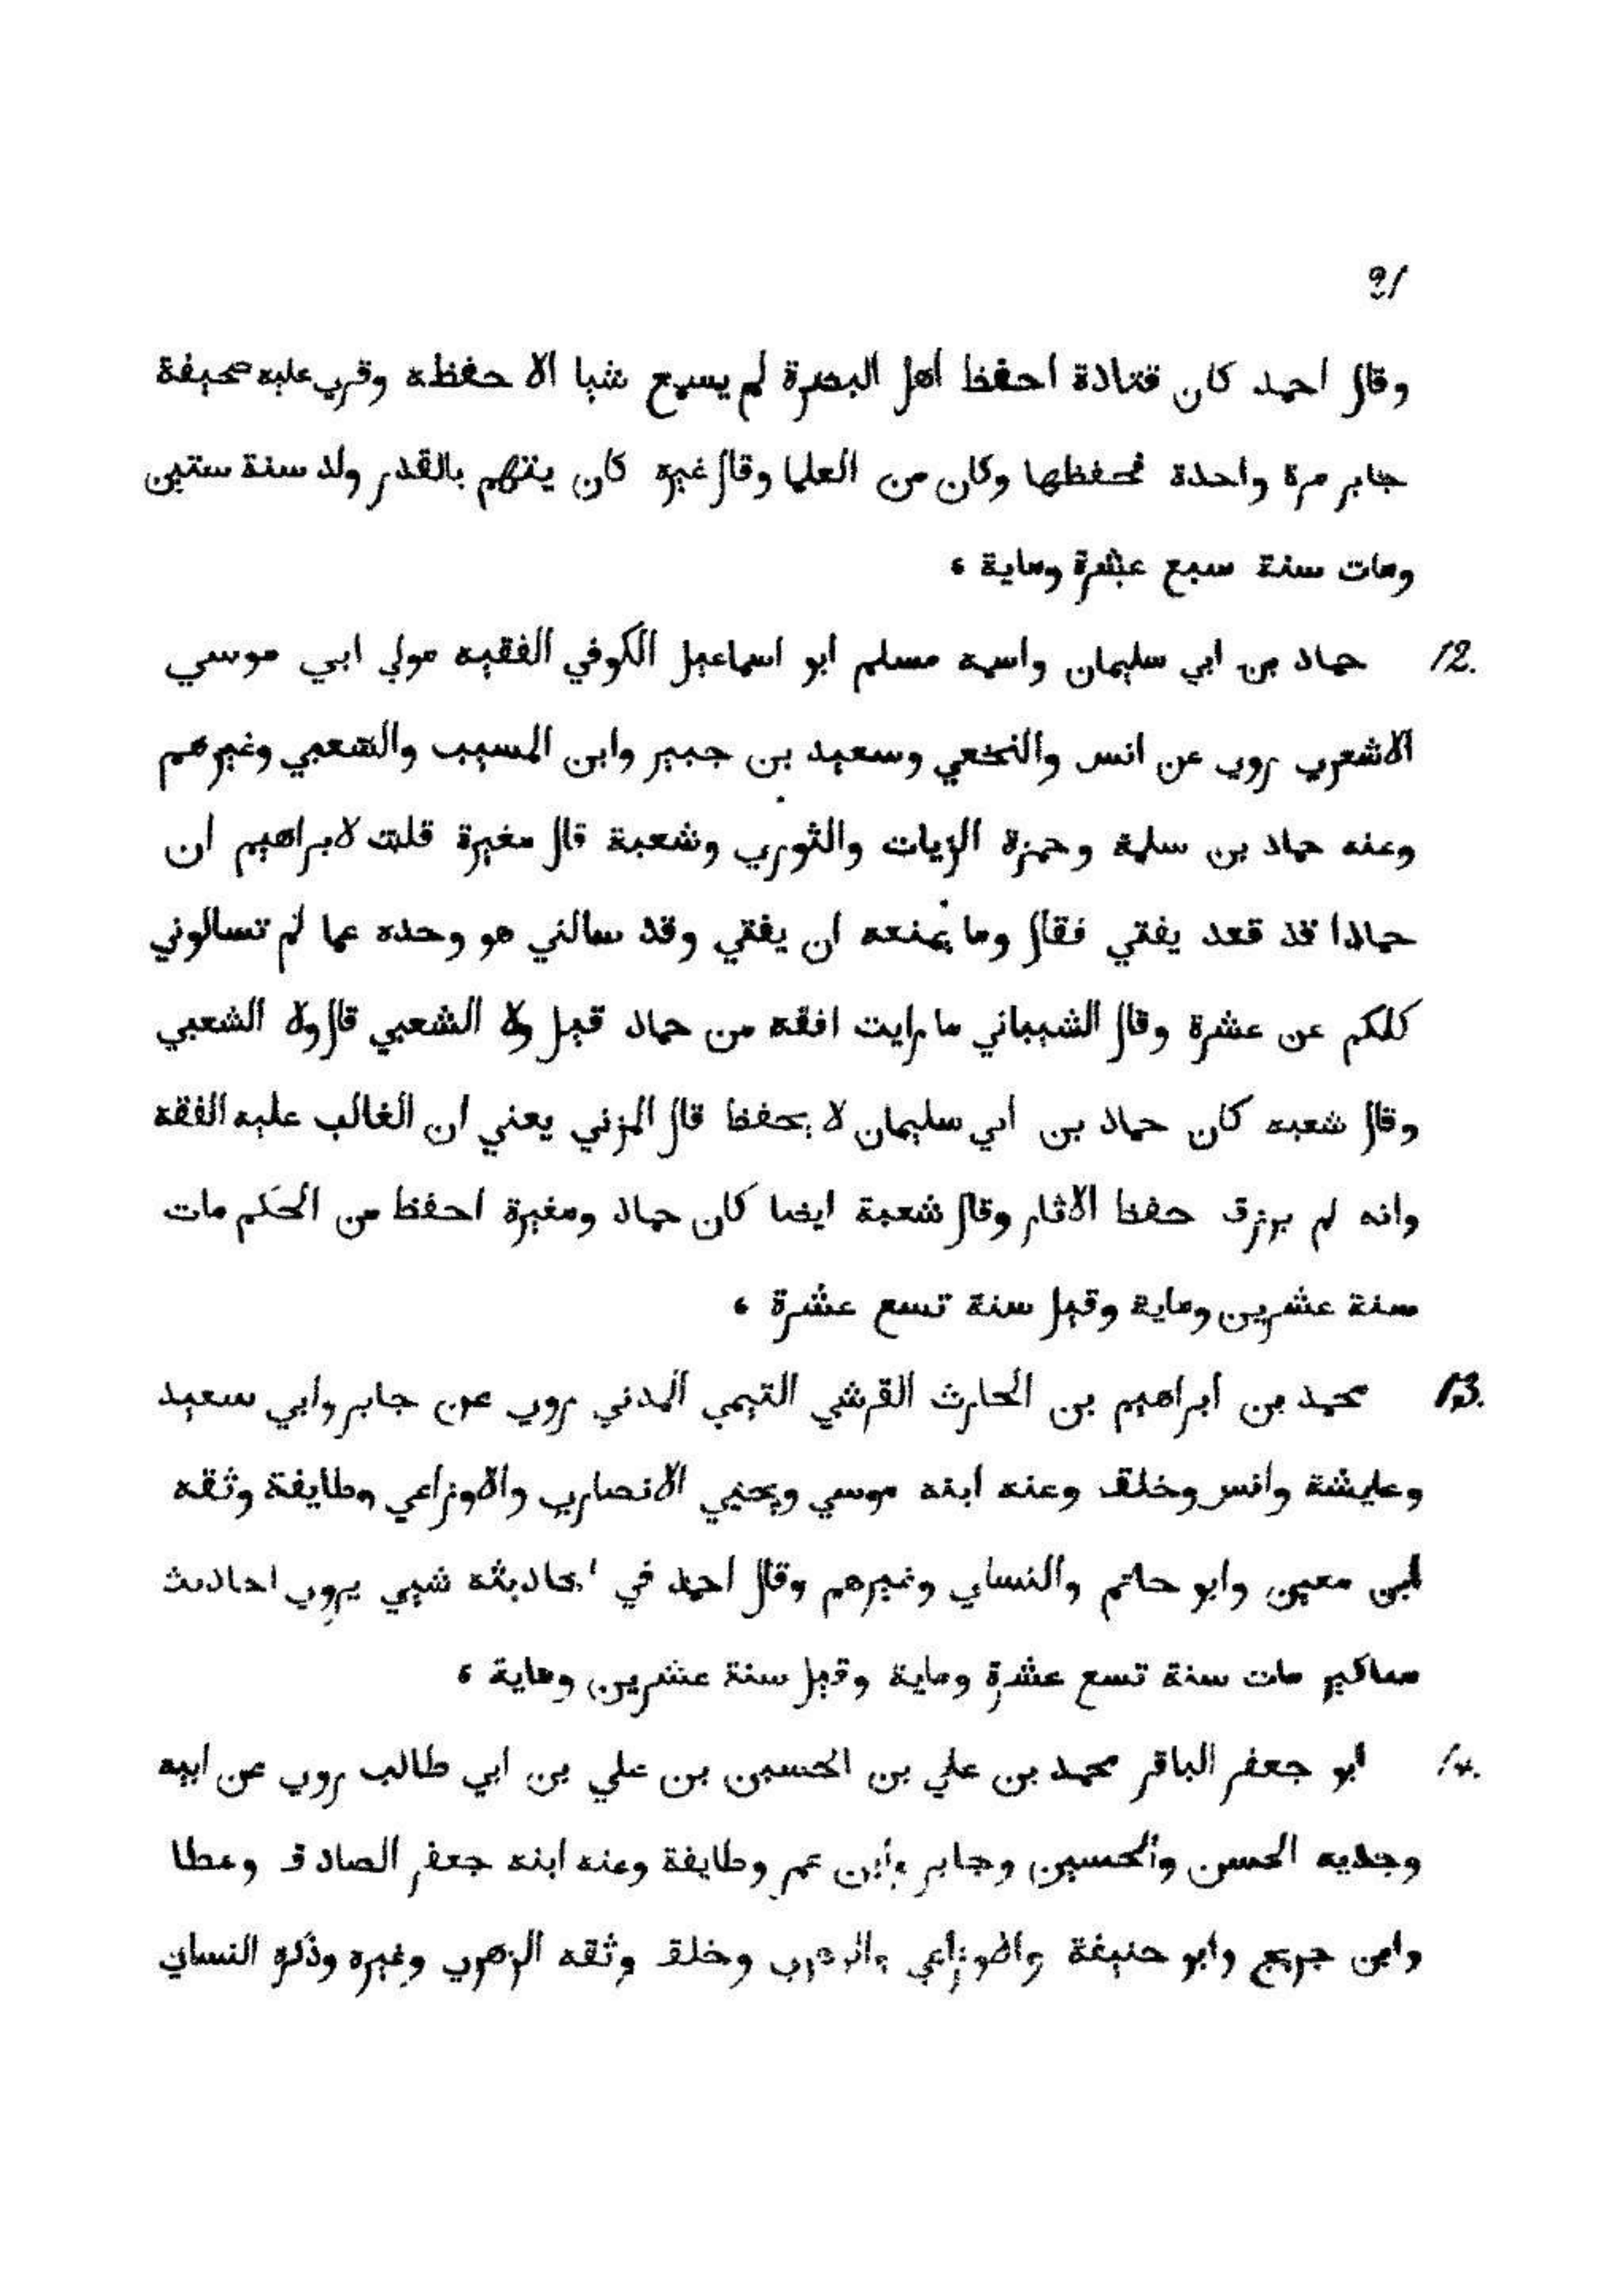 21
وقال احمد كان قتادة احفظ اهل البصرة لم يسمع شيا الا حفظه وقري عليه صحيفة
جابر مرة واحدة فحفظها وكان من العلما وقال غيره كان يتهم بالقدر ولد سنة ستين
ومات سنة سبع عشرة وماية ،
12. حماد بن ابي سليمان واسمه مسلم ابو اسماعيل الكوفي الفقيه مولي ابي موسي
الاشعري روي عن انس والنخعي وسعيد بن جبير وابن المسيب والشعبي وغيرهم
وعنه حماد بن سلمة وحمزة الزيات والثوري وشعبة قال مغيرة قلت لابراهيم ان
حمادا قد قعد يفتي فقال وما يمنعه ان يفتي وقد سالني هو وحده عما لم تسالوني
كلكم عن عشرة وقال الشيباني ما رايت افقه من حماد قيل ولا الشعبي قال ولا الشعبي
وقال شعبه كان حماد بن ابي سليمان لا يحفظ قال المزني يعني ان الغالب عليه الفقه
وانه لم يرزق حفظ الاثار وقال شعبة ايضا كان حماد ومغيرة احفظ من الحكم مات
سنة عشرين وماية وقيل سنة تسع عشرة ،
13. محمد بن ابراهيم بن الحارث القرشي التيمي المدني روي عن جابر وابي سعيد
وعايشة وانس وخلق وعنه ابنه موسي ويحيي الانصاري والاوزاعي وطايفة وثقه
ابن معين وابو حاتم والنساي وغيرهم وقال احمد في احاديثه شيي يروي احاديث
مناكير مات سنة تسع عشرة وماية وقيل سنة عشرين وماية ،
14. ابو جعفر الباقر محمد بن علي بن الحسين بن علي بن ابي طالب روي عن ابيه
وجديه الحسن والحسين وجابر وابن عمر وطايفة وعنه ابنه جعفر الصادق وعطا
وابن جريج وابو حنيفة والاوزاعي والزهري وخلق وثقه الزهري وغيره وذكره النساي